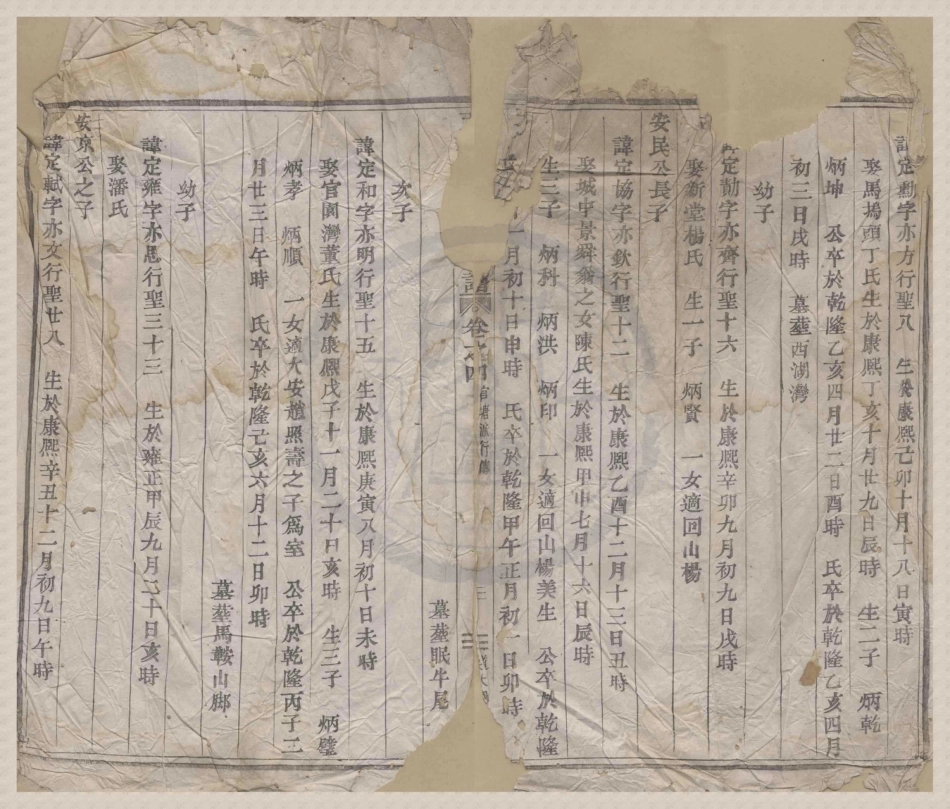 諱定勳字亦方行聖八 生於康熙己卯十月十八日寅時
娶馬塢頭丁氏生於康熙丁亥十月廿九日辰時 生二子 炳乾
炳坤 公卒於乾隆乙亥四月廿二日酉時 氏卒於乾隆乙亥四月
初三日戌時 墓塟西湖灣
幼子
定勛字亦齊行聖十六 生於康熙辛卯九月初九日戌時
娶新堂楊氏 生一子 炳賢 一女適回山楊
安民公長子
諱定協字亦欽行聖十二 生於康熙乙酉十二月十三日丑時
娶城中景舜翁之女陳氏生於康熙甲申七月十六日辰時
生三子 炳科 炳洪 炳印 一女適回山楊美生 公卒於乾隆
一月初十日申時 氏卒於乾隆甲午正月初一日卯時
墓塟眠牛尾
次子
諱定和字亦明行聖十五 生於康熙庚寅八月初十日未時
娶官園灣董氏生於康熙戊子十一月二十日亥時 生三子 炳璧
炳孝 炳順 一女適大安趙照壽之子爲室 公卒於乾隆丙子二
月廿三日午時 氏卒於乾隆己亥六月十二日卯時
墓塟馬鞍山脚
幼子
諱定雍字亦恩行聖三十三 生於雍正甲辰九月二十日亥時
娶潘氏
安京公之子
諱定軾字亦文行聖廿八 生於康熙辛丑十二月初九日午時